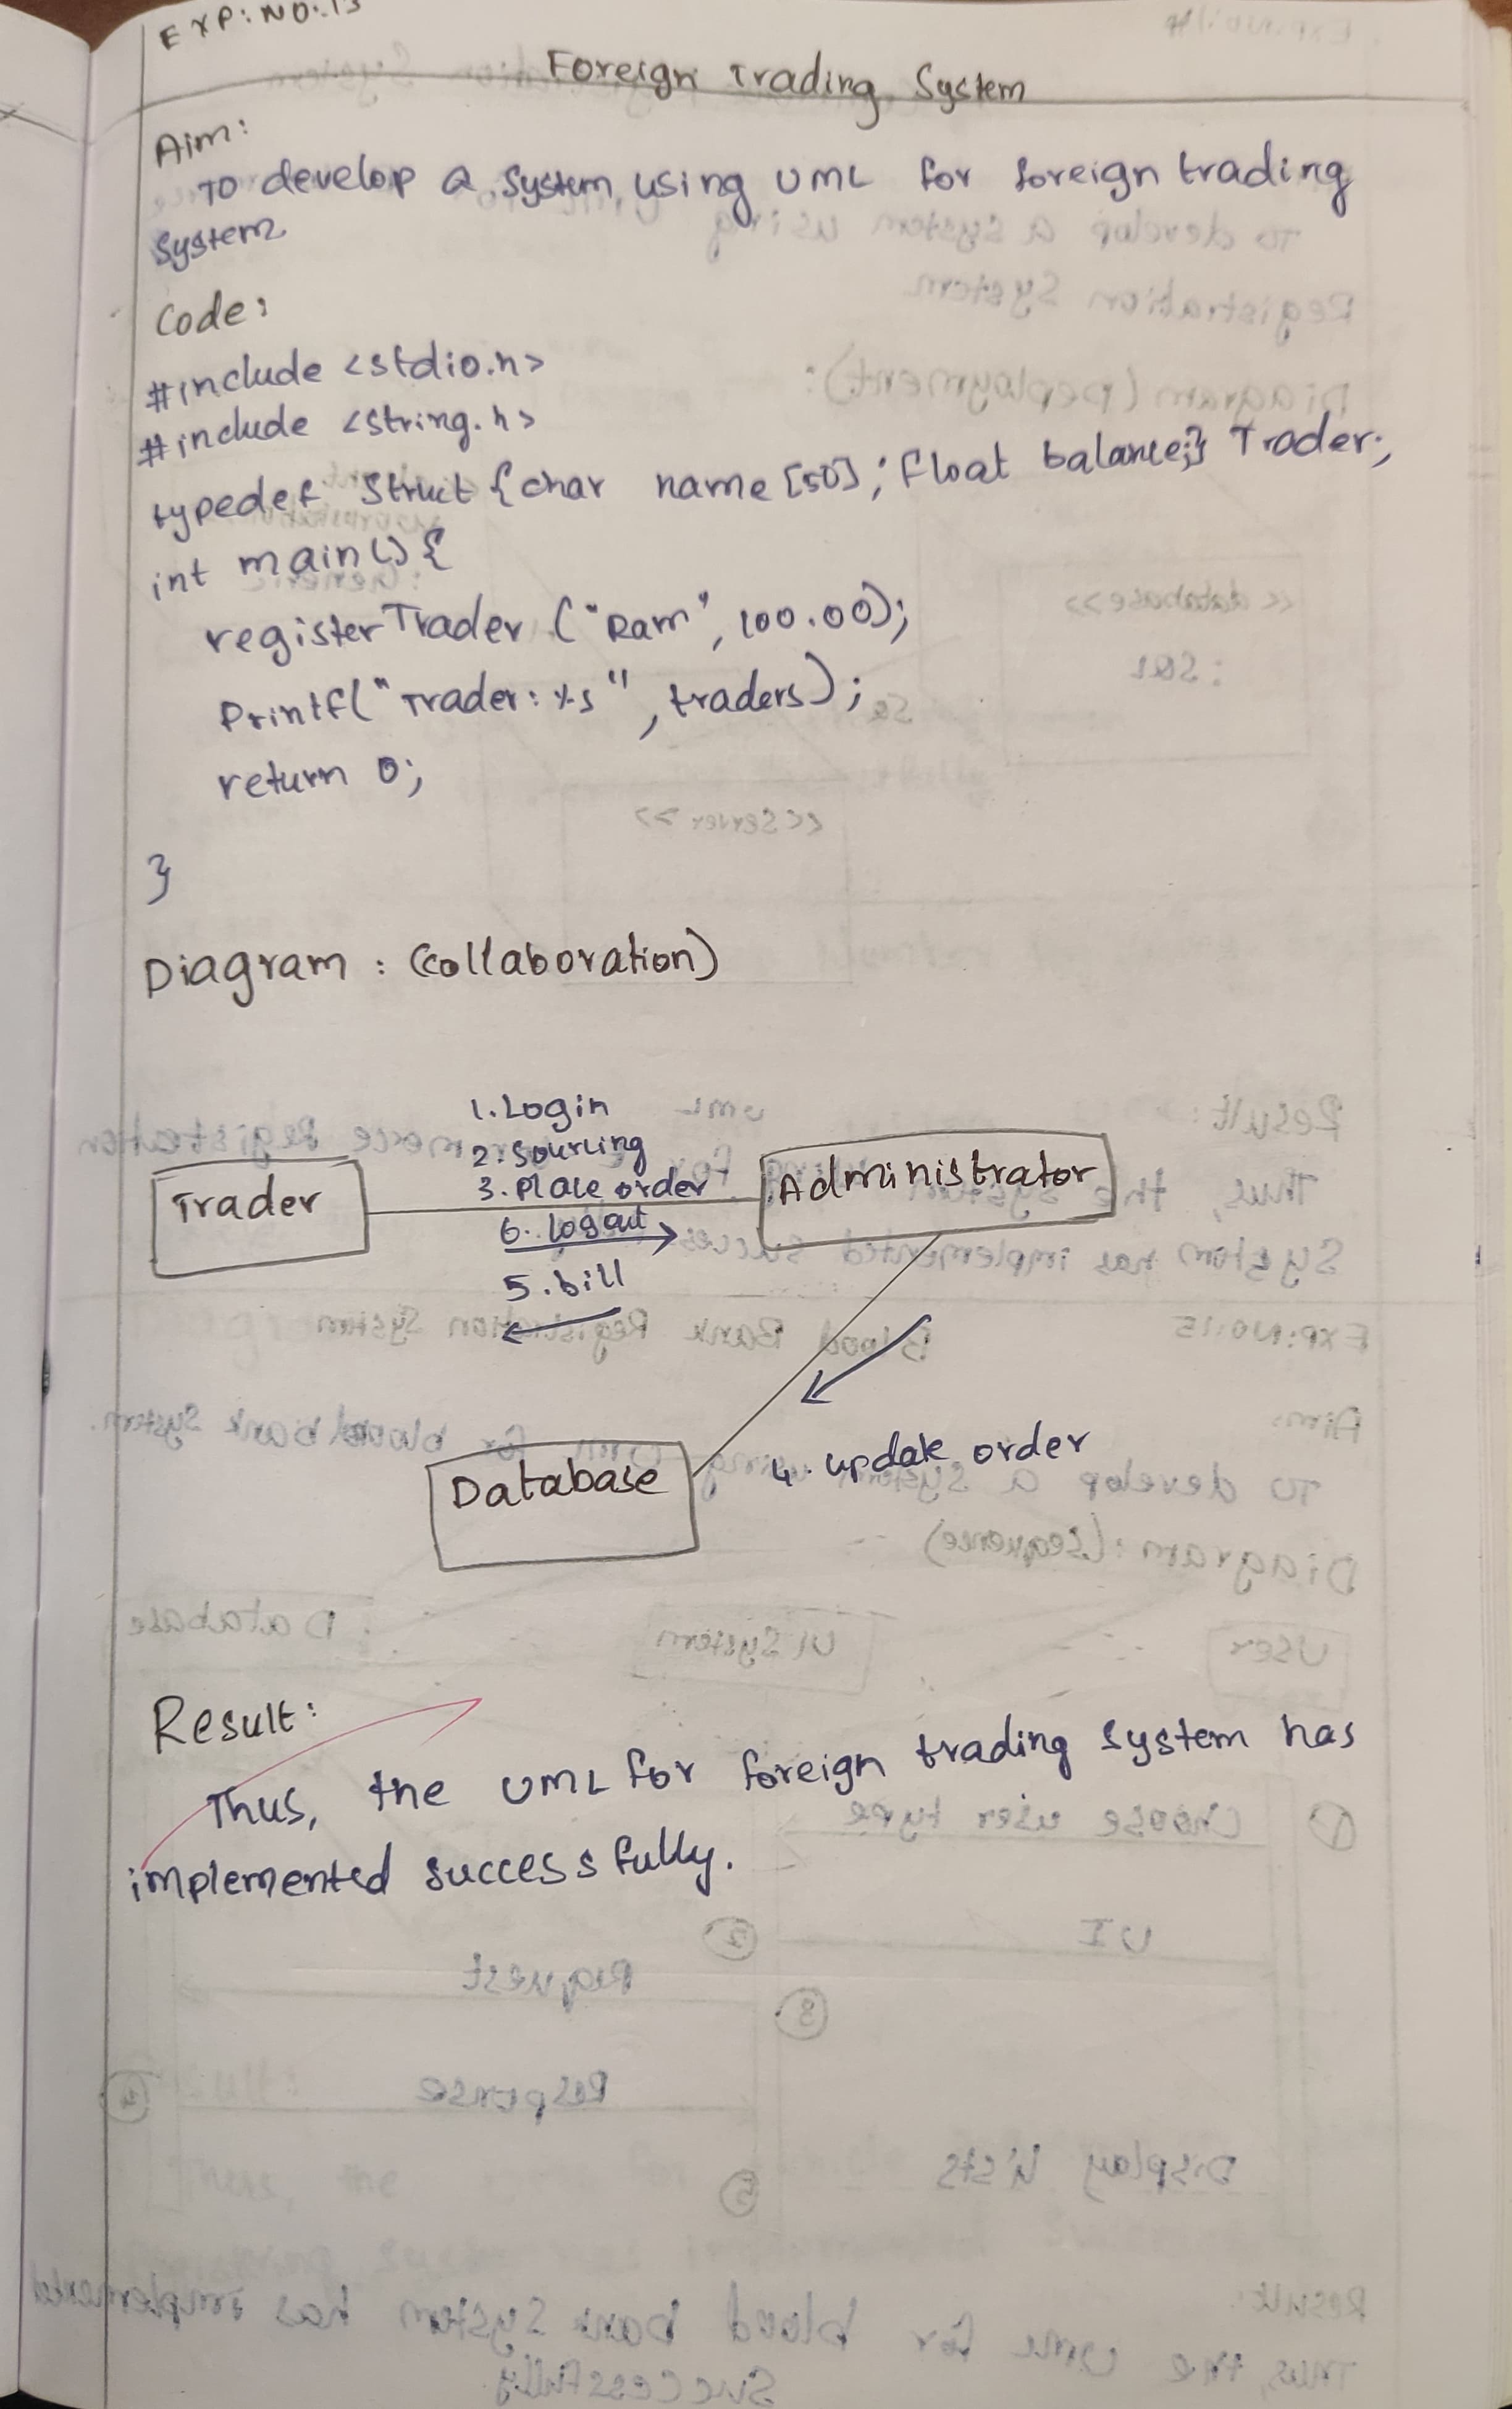 EXP: NO: 13
Foreign Trading System
Aim:
To develop a system using UML for foreign trading
system
Code:
#include <stdio.h>
#include <string.h>
typedef struct {char name [50]; float balance;} Trader;
int main() {
registerTrader ("Ram", 100.00);
Printf("Trader: %s", traders);
return 0;
}
Diagram : (Collaboration)
1. Login
2. Sourcing
3. Place order
Trader
Administrator
6. logout
5. bill
4. update order
Database
Result:
Thus, the UML for foreign trading system has
implemented successfully.